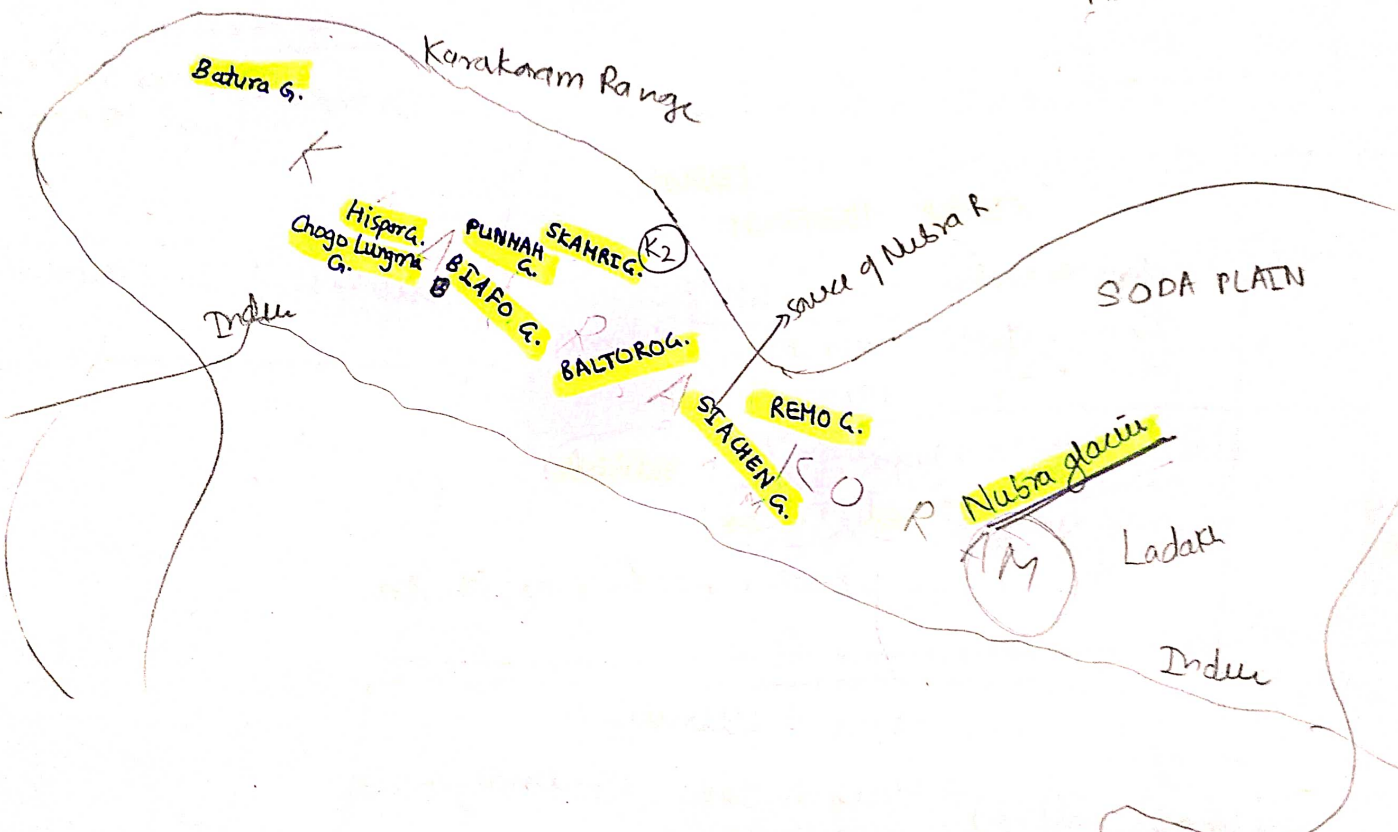 Batura G.
Karakoram Range
Hispar G.
Chogo Lungma
G.
PUNMAH
G.
SKAMRI G.
K2
BIAFO G.
Indus
BALTORO G.
source of Nubra R.
SODA PLAIN
SIACHEN G.
REMO G.
Nubra glacier
K A R A K O R A M
Ladakh
Indus